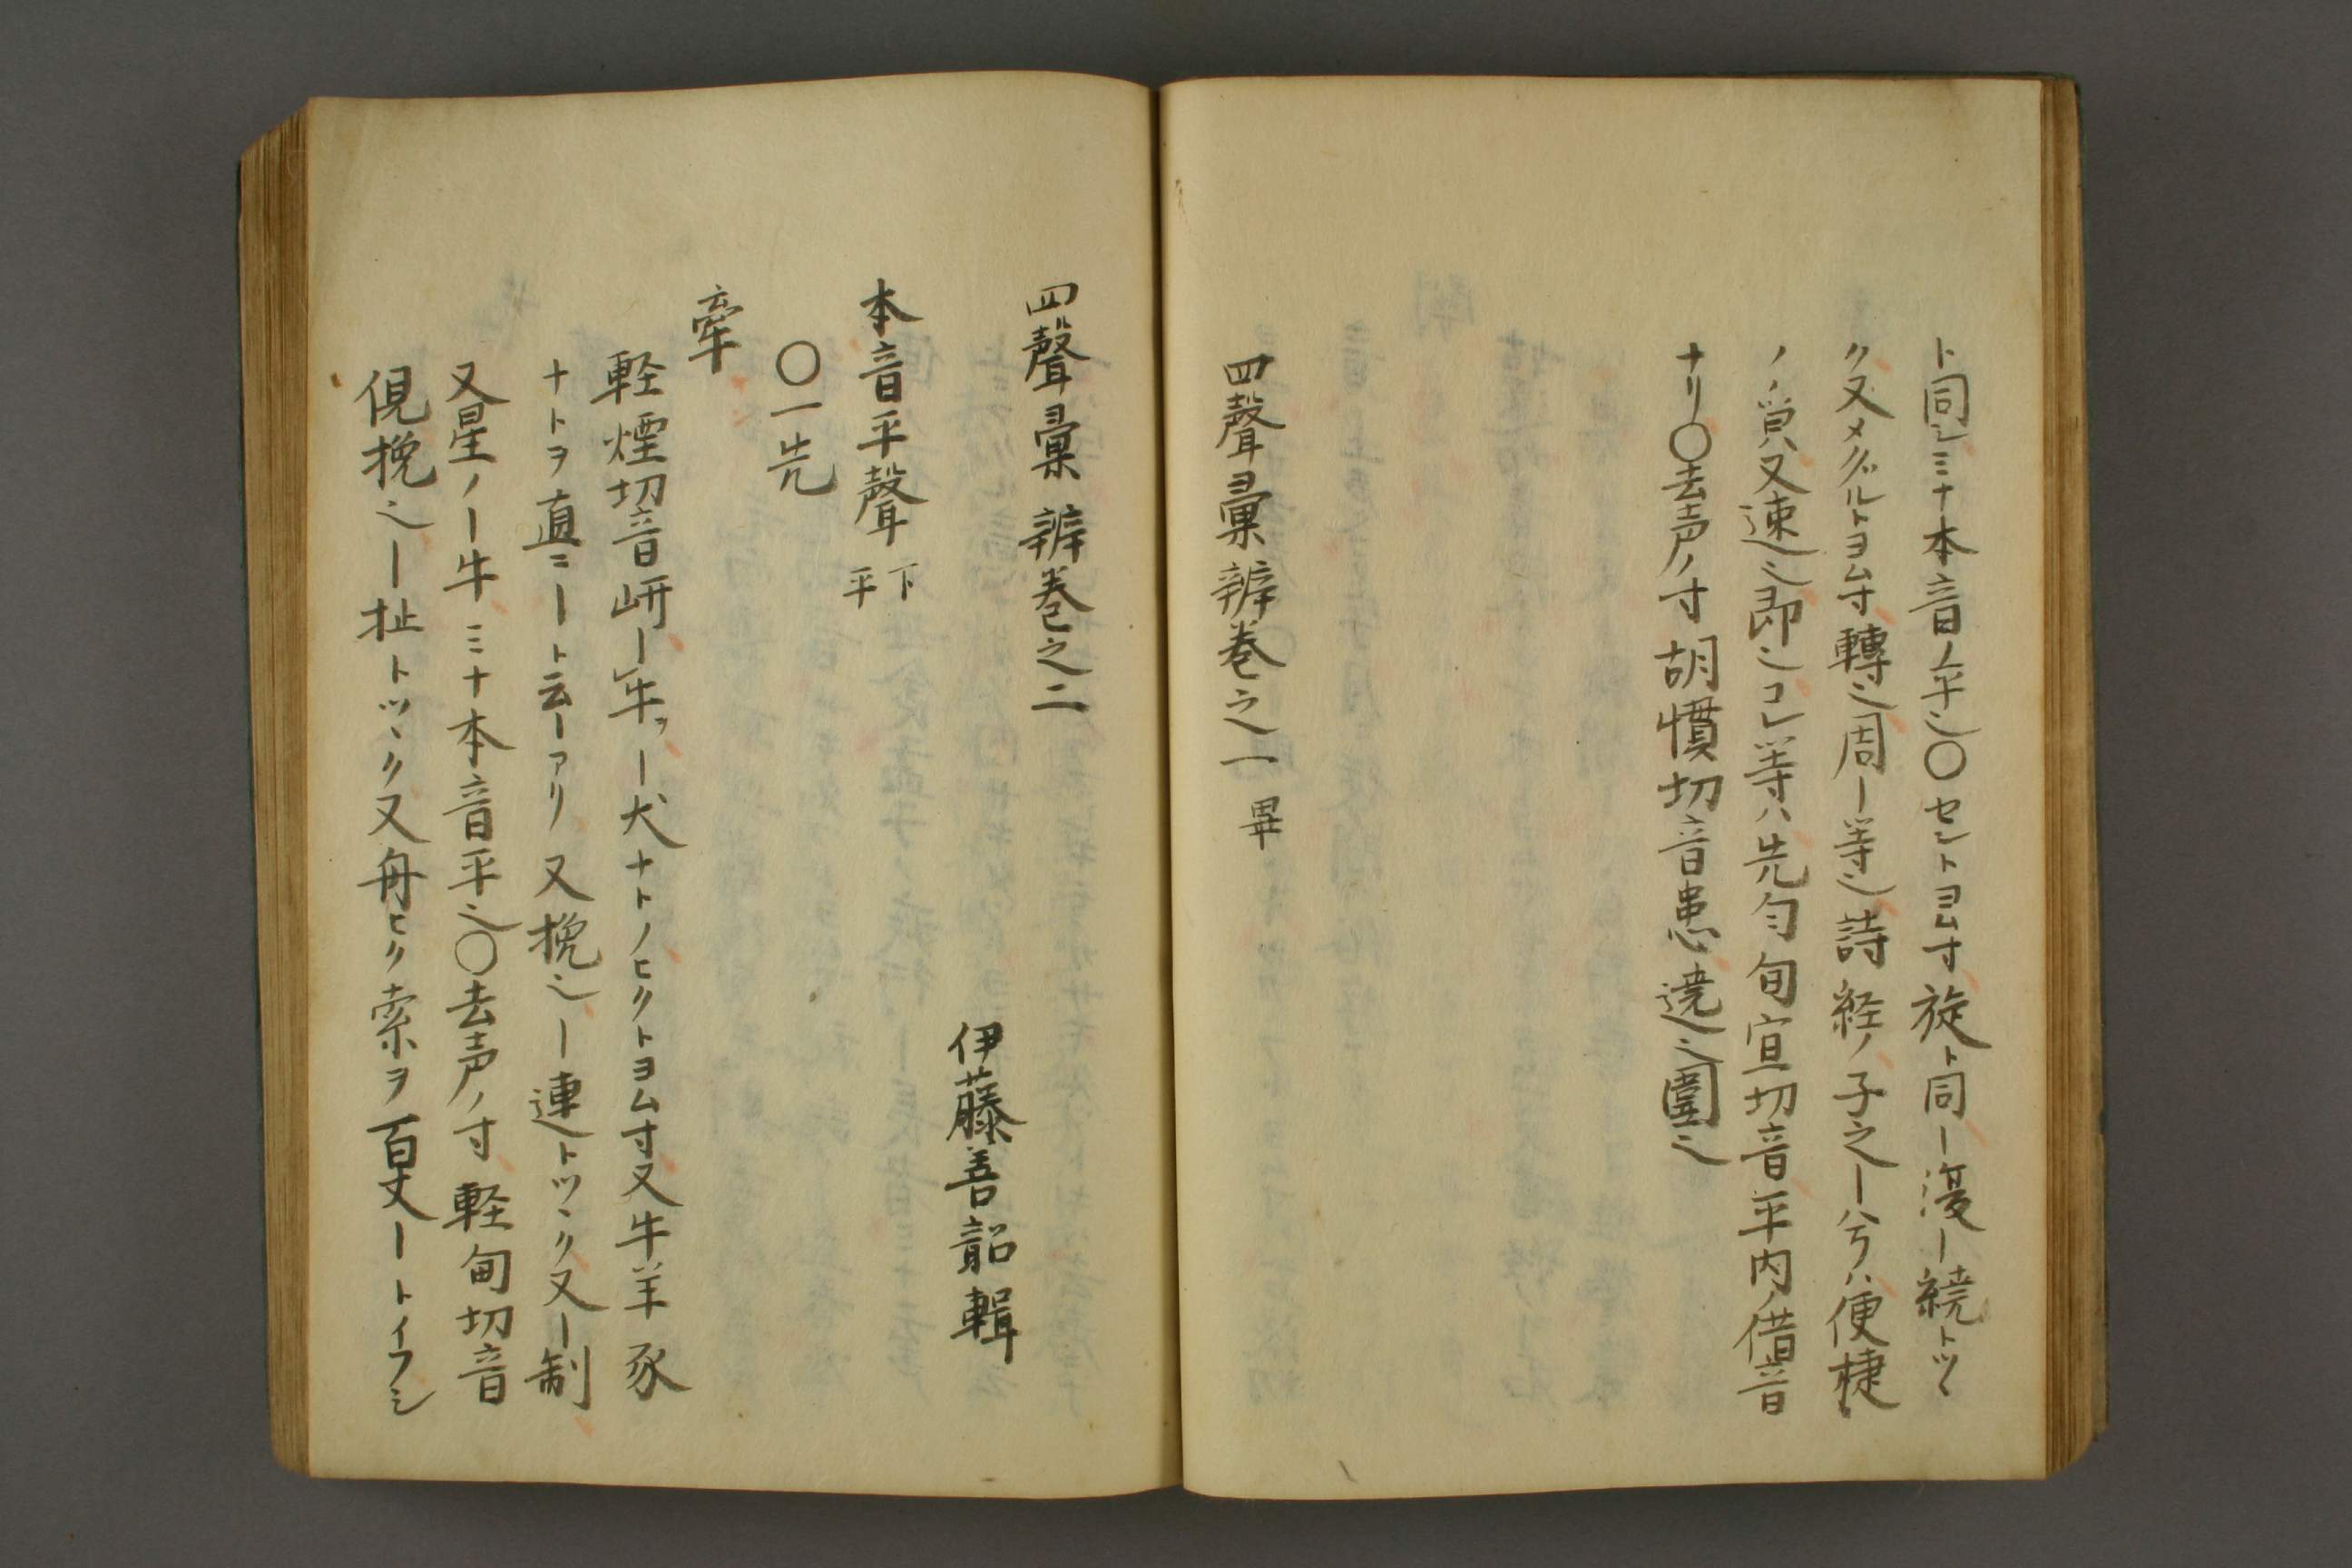 ト同シミナ本音ノ平也〇センドヨム寸旋ト同ー漫ー繞トツヽ
ク又メグルトヨム寸轉也周ー等也詩経ノ子之ー兮ハ便捷
ノ皃又速也即也コレ等ハ先句旬宣切音平内ノ借音
ナリ〇去声ノ寸胡慣切音患遶也圍也
四聲彙辨巻之一畢
四聲彙辨巻之二
伊藤善韶輯
本音平聲下平
〇一先
牽
軽煙切音岍ー牛ヲー犬ナトノヒクトヨム寸又牛羊豕
ナトヲ直ニート云ーアリ又挽也ー連トツヽク又ー制
又星ノー牛ミナ本音平也〇去声ノ寸軽甸切音
俔挽也ー扯トツヽク又舟ヒク索ヲ百丈ートイフ也